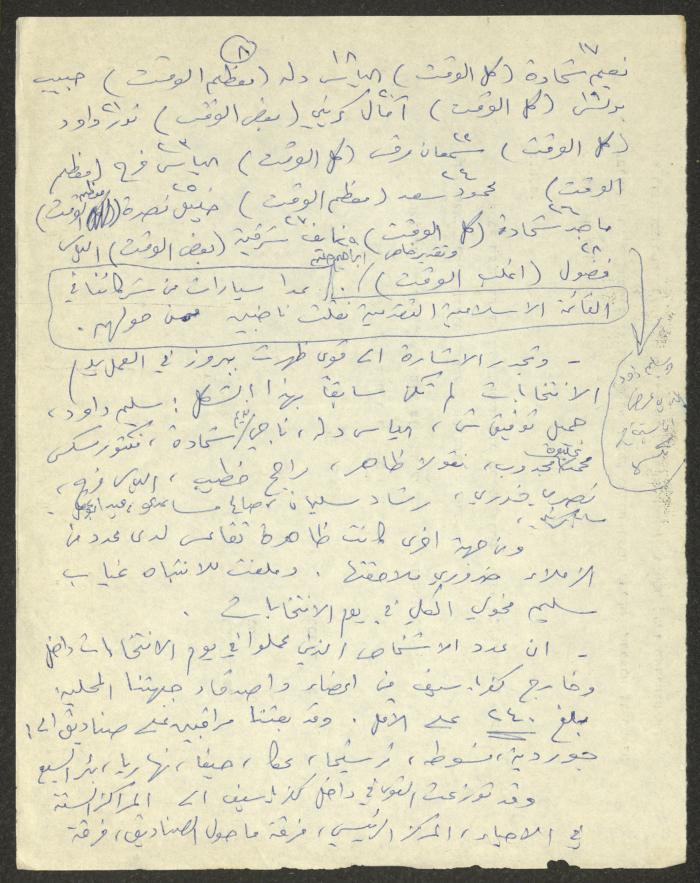 ٨
١٧ ١٨
نعيم شحادة (كل الوقت) الياس دله (معظم الوقت) حبيب
١٩ ٢٠ ٢١
بولس (كل الوقت) آمال كريني (بعض الوقت) نور داود
٢٢ ٢٣
(كل الوقت) سمعان مرقس (كل الوقت) الياس فرح (معظم
٢٤ ٢٥
الوقت) محمود سعد (معظم الوقت) خليل نصرة (معظم الوقت)
٢٦ ٢٧
ماجد شحادة (كل الوقت) ونايف شرقية (بعض الوقت) الياس
٢٨
فضول (اغلب الوقت). عدا سيارات من شركائنا في
القائمة الاسلامية التقدمية نقلت ناخبيه من حولهم.
- وتجدر الاشارة الى قوى ظهرت ببروز في العمل
الانتخابات لم تكن سابقاً بهذا الشكل: سليم داود،
جميل توفيق، الياس دله، ناجي شحادة، فكتور سكس
محمد مجدوب، نقولا ظاهر، راجح خطيب، الياس فرح،
نصري خوري، رشاد سليمان،
ومن جهة اخرى كانت ظاهرة تقاعس لدى عدد من
الزملاء ضروري ملاحقتها. وملفت للانتباه غياب
سليم مخولي الكلي في يوم الانتخابات.
- ان عدد الاشخاص الذين عملوا في يوم الانتخابات داخل
وخارج كفرياسيف من اعضاء واصدقاء جبهتنا المحلية
بلغ ٢٤٠ على الاقل. وقد بعثنا مراقبين على صناديق الى:
جوردية، فسوطه، ترشيحا، عكا، حيفا، نهاريا، بئر السبع
وقد توزعت القوى في داخل كفرياسيف الى المراكز الستة
في الاحياء، المركز الرئيسي، فرقة ما حول الصناديق، فرقة